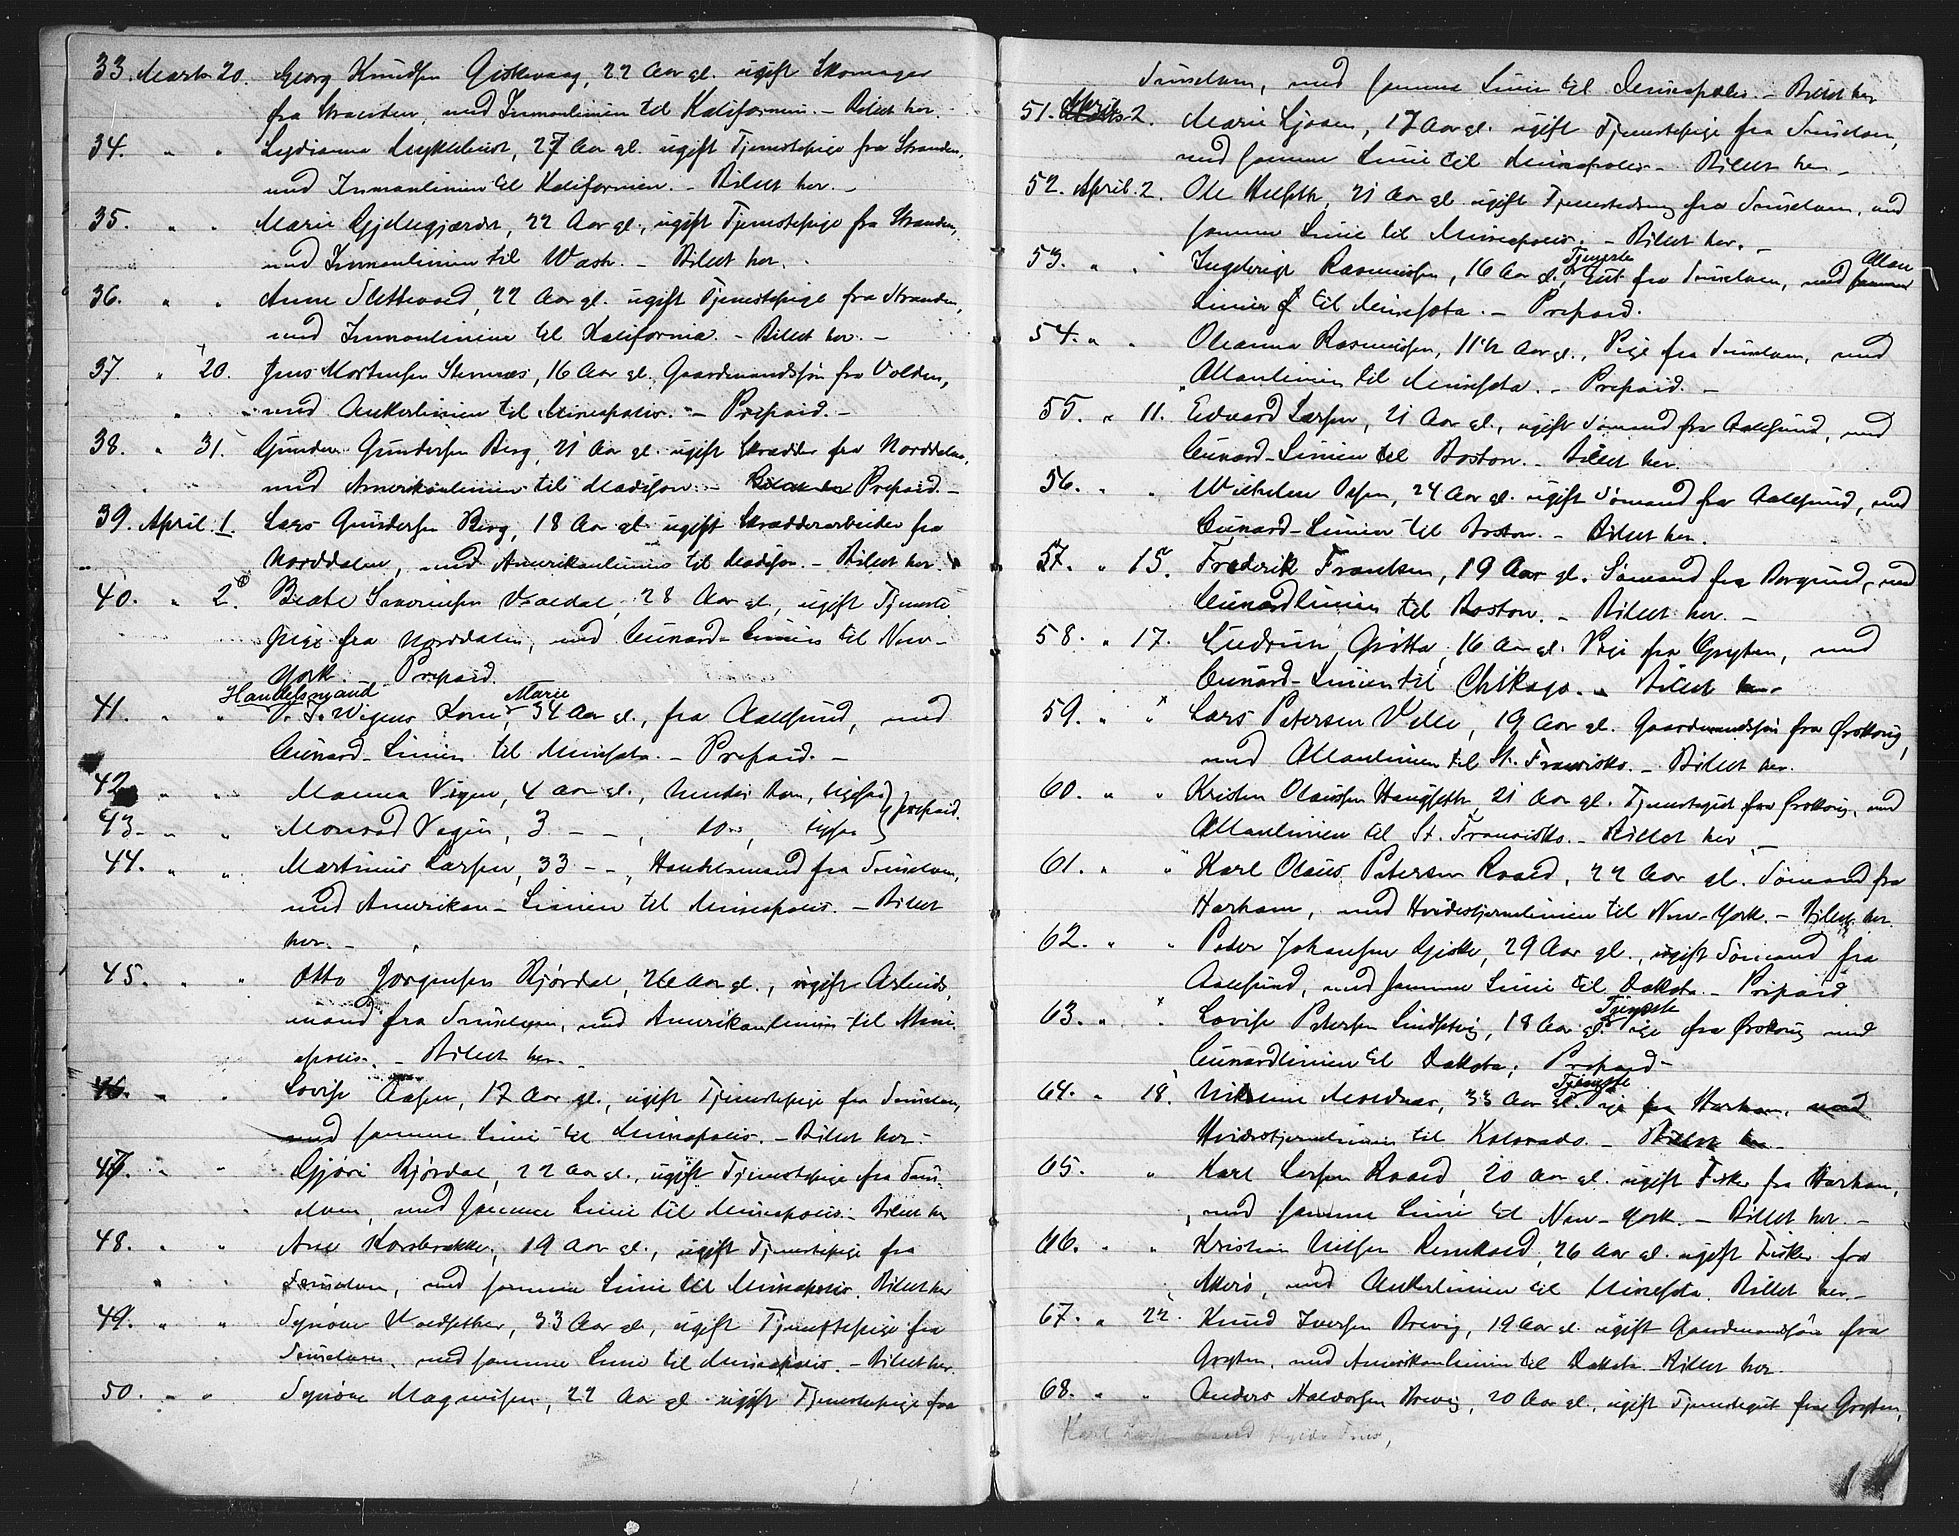 33. Marts 20. Georg Knudsen Giskevaag, 22 Aar gl. ugift Skomager
fra Stranden, med Inmanlinien til Kalifornien. - Billet her.
34. " " Lydianna Myklebust, 27 Aar gl. ugift Tjenestepige fra Stranden,
med Inmanlinien til Kalifornien. - Billet her. -
35. " " Marie Gjellegjærdet, 22 Aar gl., ugift Tjenestepige fra Stranden,
med Inmanlinien til Wash. - Billet her.
36. " " Anne Slettevold, 22 Aar gl. ugift Tjenestepige fra Stranden,
med Inmanlinien til Kalifornia. - Billet her. -
37. " 20. Jens Mortensen Stennæs, 16 Aar gl. Gaardmandssøn fra Volden,
med Ankerlinien til Mineapolis. - Prepaid. -
38. " 31. Gunder Gundersen Berg, 21 Aar gl. ugift Skrædder fra Norddalen,
med Amerikanlinien til Madison. - Billet her Prepaid. -
39. April 1. Lars Gundersen Berg, 18 Aar gl. ugift Skrædderarbeider fra
Norddalen, med Amerikanlinien til Madison. - Billet her.
40. " 2. Beate Severinsen Vældal, 28 Aar gl., ugift Tjeneste
pige fra Norddalen, med Cunard-Linien til New-
York. Prepaid.
Handelsmand Marie
41. " " P. S. Vigens Kone, 34 Aar gl., fra Aalesund, med
Cunard-Linien til Minesota. - Prepaid. -
42. " " Manna Vigen, 4 Aar gl., hendes Barn, ligesaa } prepaid.
43. " " Monrad Vigen, 3 - - , do , ligesaa }
44. " " Martinus Larsen, 33 - - , Handelsmand fra Sunelven,
med Amerikan-Linien til Mineapolis. - Billet
her. -
45. " " Otto Jørgensen Bjørdal, 26 Aar gl., ugift Arbeids
mand fra Sunelven, med Amerikanlinien til Mine
apolis. - Billet her.
46. " " Lovise Aasen, 17 Aar gl., ugift Tjenestepige fra Sunelven,
med samme Linie til Mineapolis. - Billet her. -
47. " " Gjøri Bjørdal, 22 Aar gl., ugift Tjenestepige fra Sun
elven, med samme Linie til Mineapolis. - Billet her
48. " " Ane Korsbrekke, 19 Aar gl., ugift Tjenestepige fra
Sunelven, med samme Linie til Mineapolis. Billet her
49. " " Synøve, 33 Aar gl., ugift Tjenestepige fra
Sunelven, med samme Linie til Mineapolis. - Billet her.
50. " " Synøve Magnusen, 22 Aar gl. ugift Tjenestepige fra
Sunelven, med samme Linie til Mineapolis. - Billet her
51. April 2. Marie Ljøaen, 17 Aar gl. ugift Tjenestepige fra Sunelven,
med samme Linie til Mineapolis. - Billet her -
52. April 2. Ole Hellseth, 21 Aar gl. ugift Tjenestedreng fra Sunelven, med
samme Linie til Mineapolis. - Billet her. -
Tjeneste Allan
53. " " Ingebrigt Rasmussen, 16 Aar gl., Gut fra Sunelven, med samme
Linien til Minesota. - Prepaid.
54. " " Oleanna Rasmussen, 11½ Aar gl., Pige fra Sunelven, med
Allanlinien til Minesota. - Prepaid. -
55. " 11. Edvard Larsen, 21 Aar gl., ugift Sømand fra Aalesund, med
Cunard-Linien til Boston. - Billet her.
56. " " Wilhelm Olsen, 24 Aar gl. ugift Sømand fra Aalesund, med
Cunard-Linien til Boston. - Billet her.
57. " 15. Fredrik Franksen, 19 Aar gl. Sømand fra Borgund, med
Cunardlinien til Boston. - Billet her. -
58. " 17. Gudrun Grøtta, 16 Aar gl. Pige fra Gryten, med
Cunard-Linien til Chikago. - Billet her
59. " " Lars Petersen Velle, 19 Aar gl. Gaardmandssøn fra Ørskoug,
med Allanlinien til St. Francisko. - Billet her.
60. " " Kristen Olaussen Haugseth, 21 Aar gl. Tjenestegut fra Ørskoug, med
Allanlinien til St. Francisko. - Billet her -
61. " " Karl Olaus Petersen Roald, 22 Aar gl. Sømand fra
Harham, med Hvidestjernelinien til New-York. - Billet her.
62. " " Peder Johansen Giske, 29 Aar gl., ugift Sømand fra
Aalesund, med samme Linie til Dakota. - Prepaid
Tjeneste
63. " " Lovise Petersen, 18 Aar gl. pige fra Ørskoug med
Cunardlinien til Dakota. Prepaid -
Tjeneste
64. " 18. Nikoline Moldnæs, 33 Aar gl. pige fra Harham, med
Hvidestjernelinien til Kolorado. - Billet her -
65. " Karl Larsen Roald, 20 Aar gl. ugift Fisker fra Harham,
med samme Linie til New-York. - Billet her. -
66. " " Kristian Nielsen, 26 Aar gl. ugift Fisker fra
Akerø, med Ankerlinien til Minesota. Billet her. -
67. " 22. Knud Iversen Brevig, 19 Aar gl. ugift Gaardmandssøn fra
Gryten, med Amerikanlinien til Dakota - Billet her.
68. " " Anders Haldorsen Brevig, 20 Aar gl., ugift Tjenestegut fra Gryten,
Karl Larsen Roald